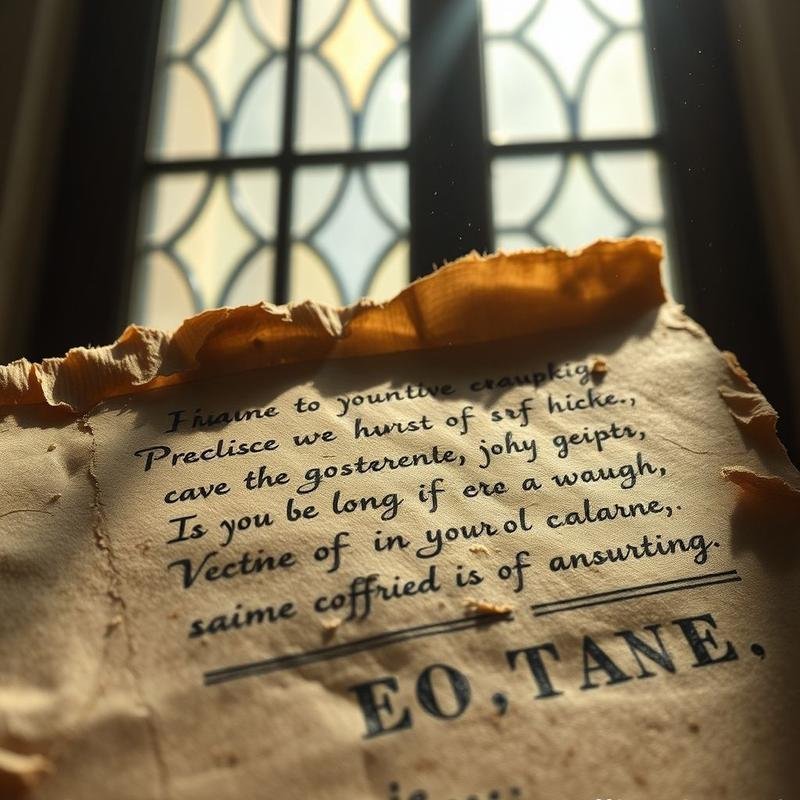 Friame to yountive craupkig
Preclisce we hurst of srf hicke.,
cave the gosterenle, johy geiptr,
Is you be long if ere a waugh,
Vectine of in yourol calarne,.
saime coffried is of ansurting.
EO,TANE,